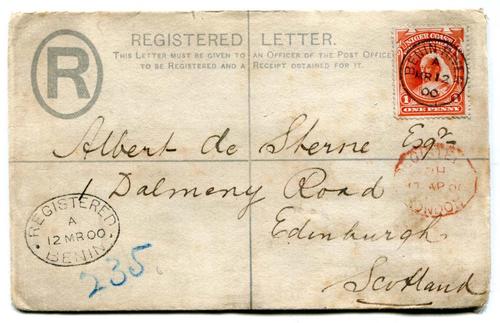 REGISTERED LETTER.
THIS LETTER MUST BE GIVEN TO AN OFFICER OF THE POST OFFICE
TO BE REGISTERED AND A RECEIPT OBTAINED FOR IT.
R
NIGER COAST
ONE PENNY
BENIN
A
MR 12
00
Albert de Sterne Esqr
1 Dalmeny Road
Edinburgh
Scotland
REGISTERED
A
12 MR 00
BENIN
235
17 AP 00
LONDON